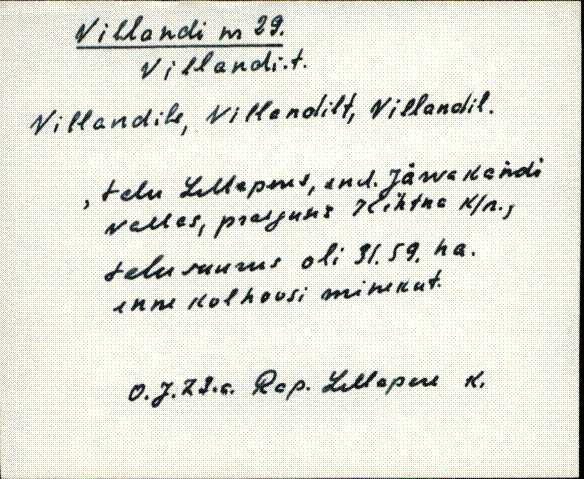 Villandi nr 29.
Villandi.t.
Villandile, Villandilt, Villandil.
, talu Lellapere, end. Järvakandi
vallas, praeguse Kehtna k/n.,
talu suurus oli 31.59. ha.
enne kolhoosi minekut.
O.J. 72.a. Rap. Lellapere k.